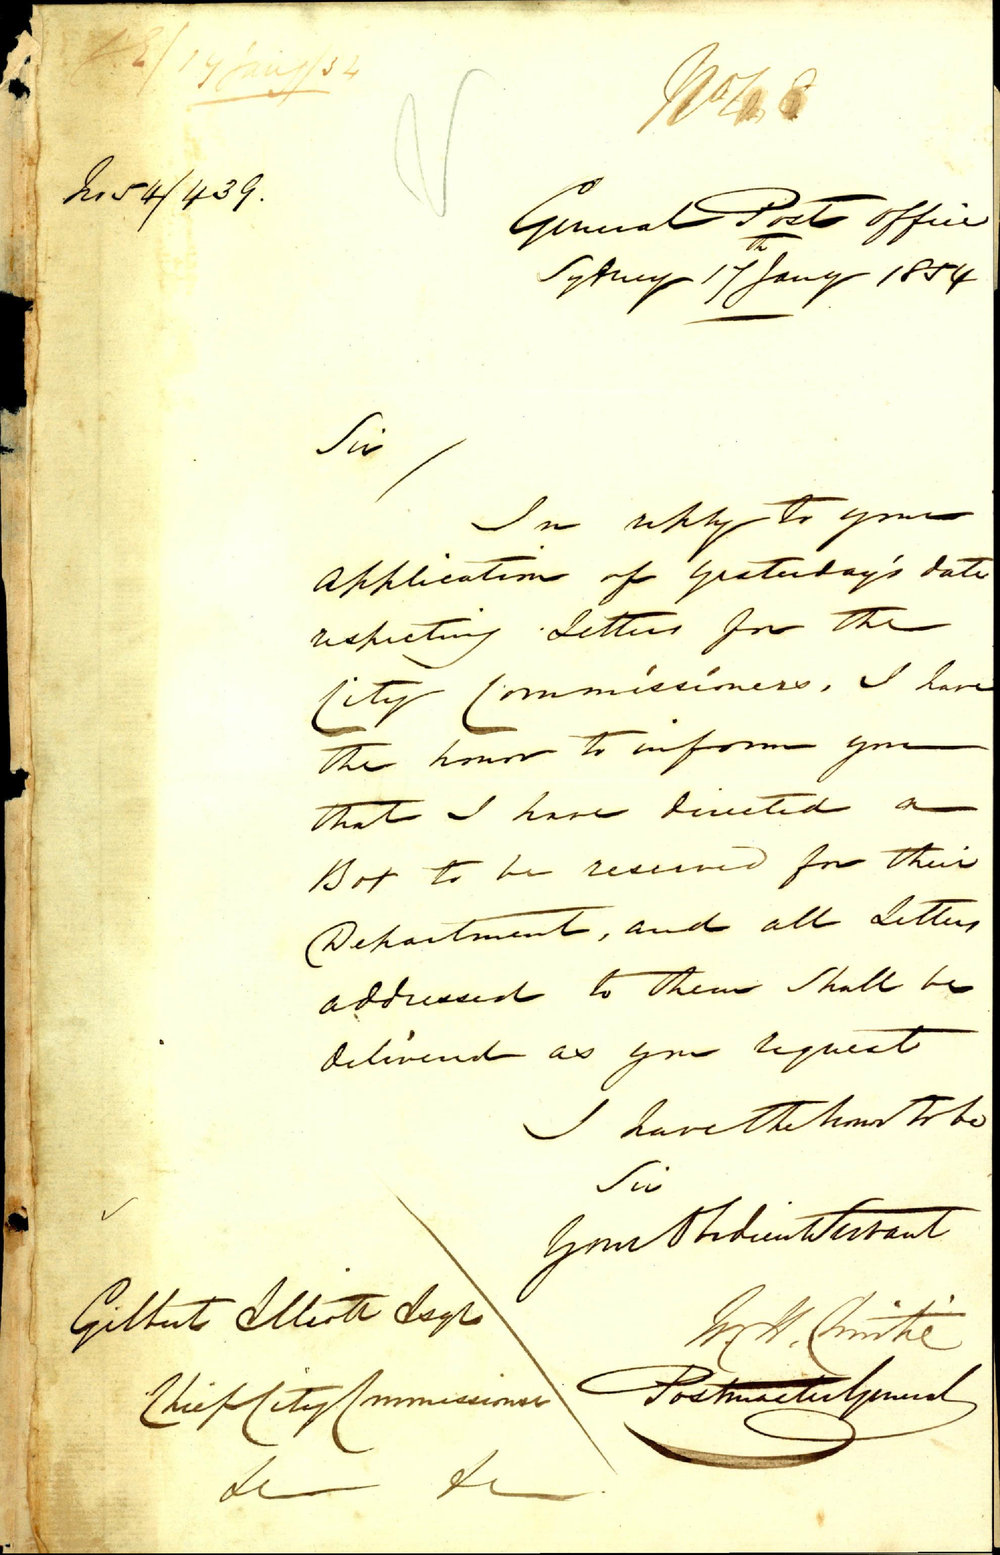 17 Jany/54
No 54/439.
General Post Office
Sydney 17th Jany 1854
Sir
In reply to your
Application of yesterday's date
respecting Letters for the
City Commissioners, I have
the honor to inform you
that I have directed a
Box to be reserved for their
Department, and all Letters
addressed to them shall be
delivered as you request
I have the honor to be
Sir
Your Obedient Servant
W. H. Christie
Postmaster General
Gilbert Elliott Esqr
Chief City Commissioner
&c &c